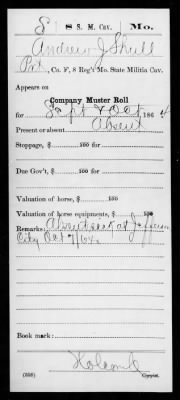 S | 8 S. M. Cav. | Mo.
Andrew J Shull
Pvt, Co. F, 8 Reg't Mo. State Militia Cav.
Appears on
Company Muster Roll
for Sept & Oct, 1864
Present or absent Absent
Stoppage, $ 100 for
Due Gov't, $ 100 for
Valuation of horse, $ 100
Valuation of horse equipments, $ 100
Remarks: Absent sick at Jefferson
City Oct 7/64
Book mark:
Holcomb
(358) Copyist.